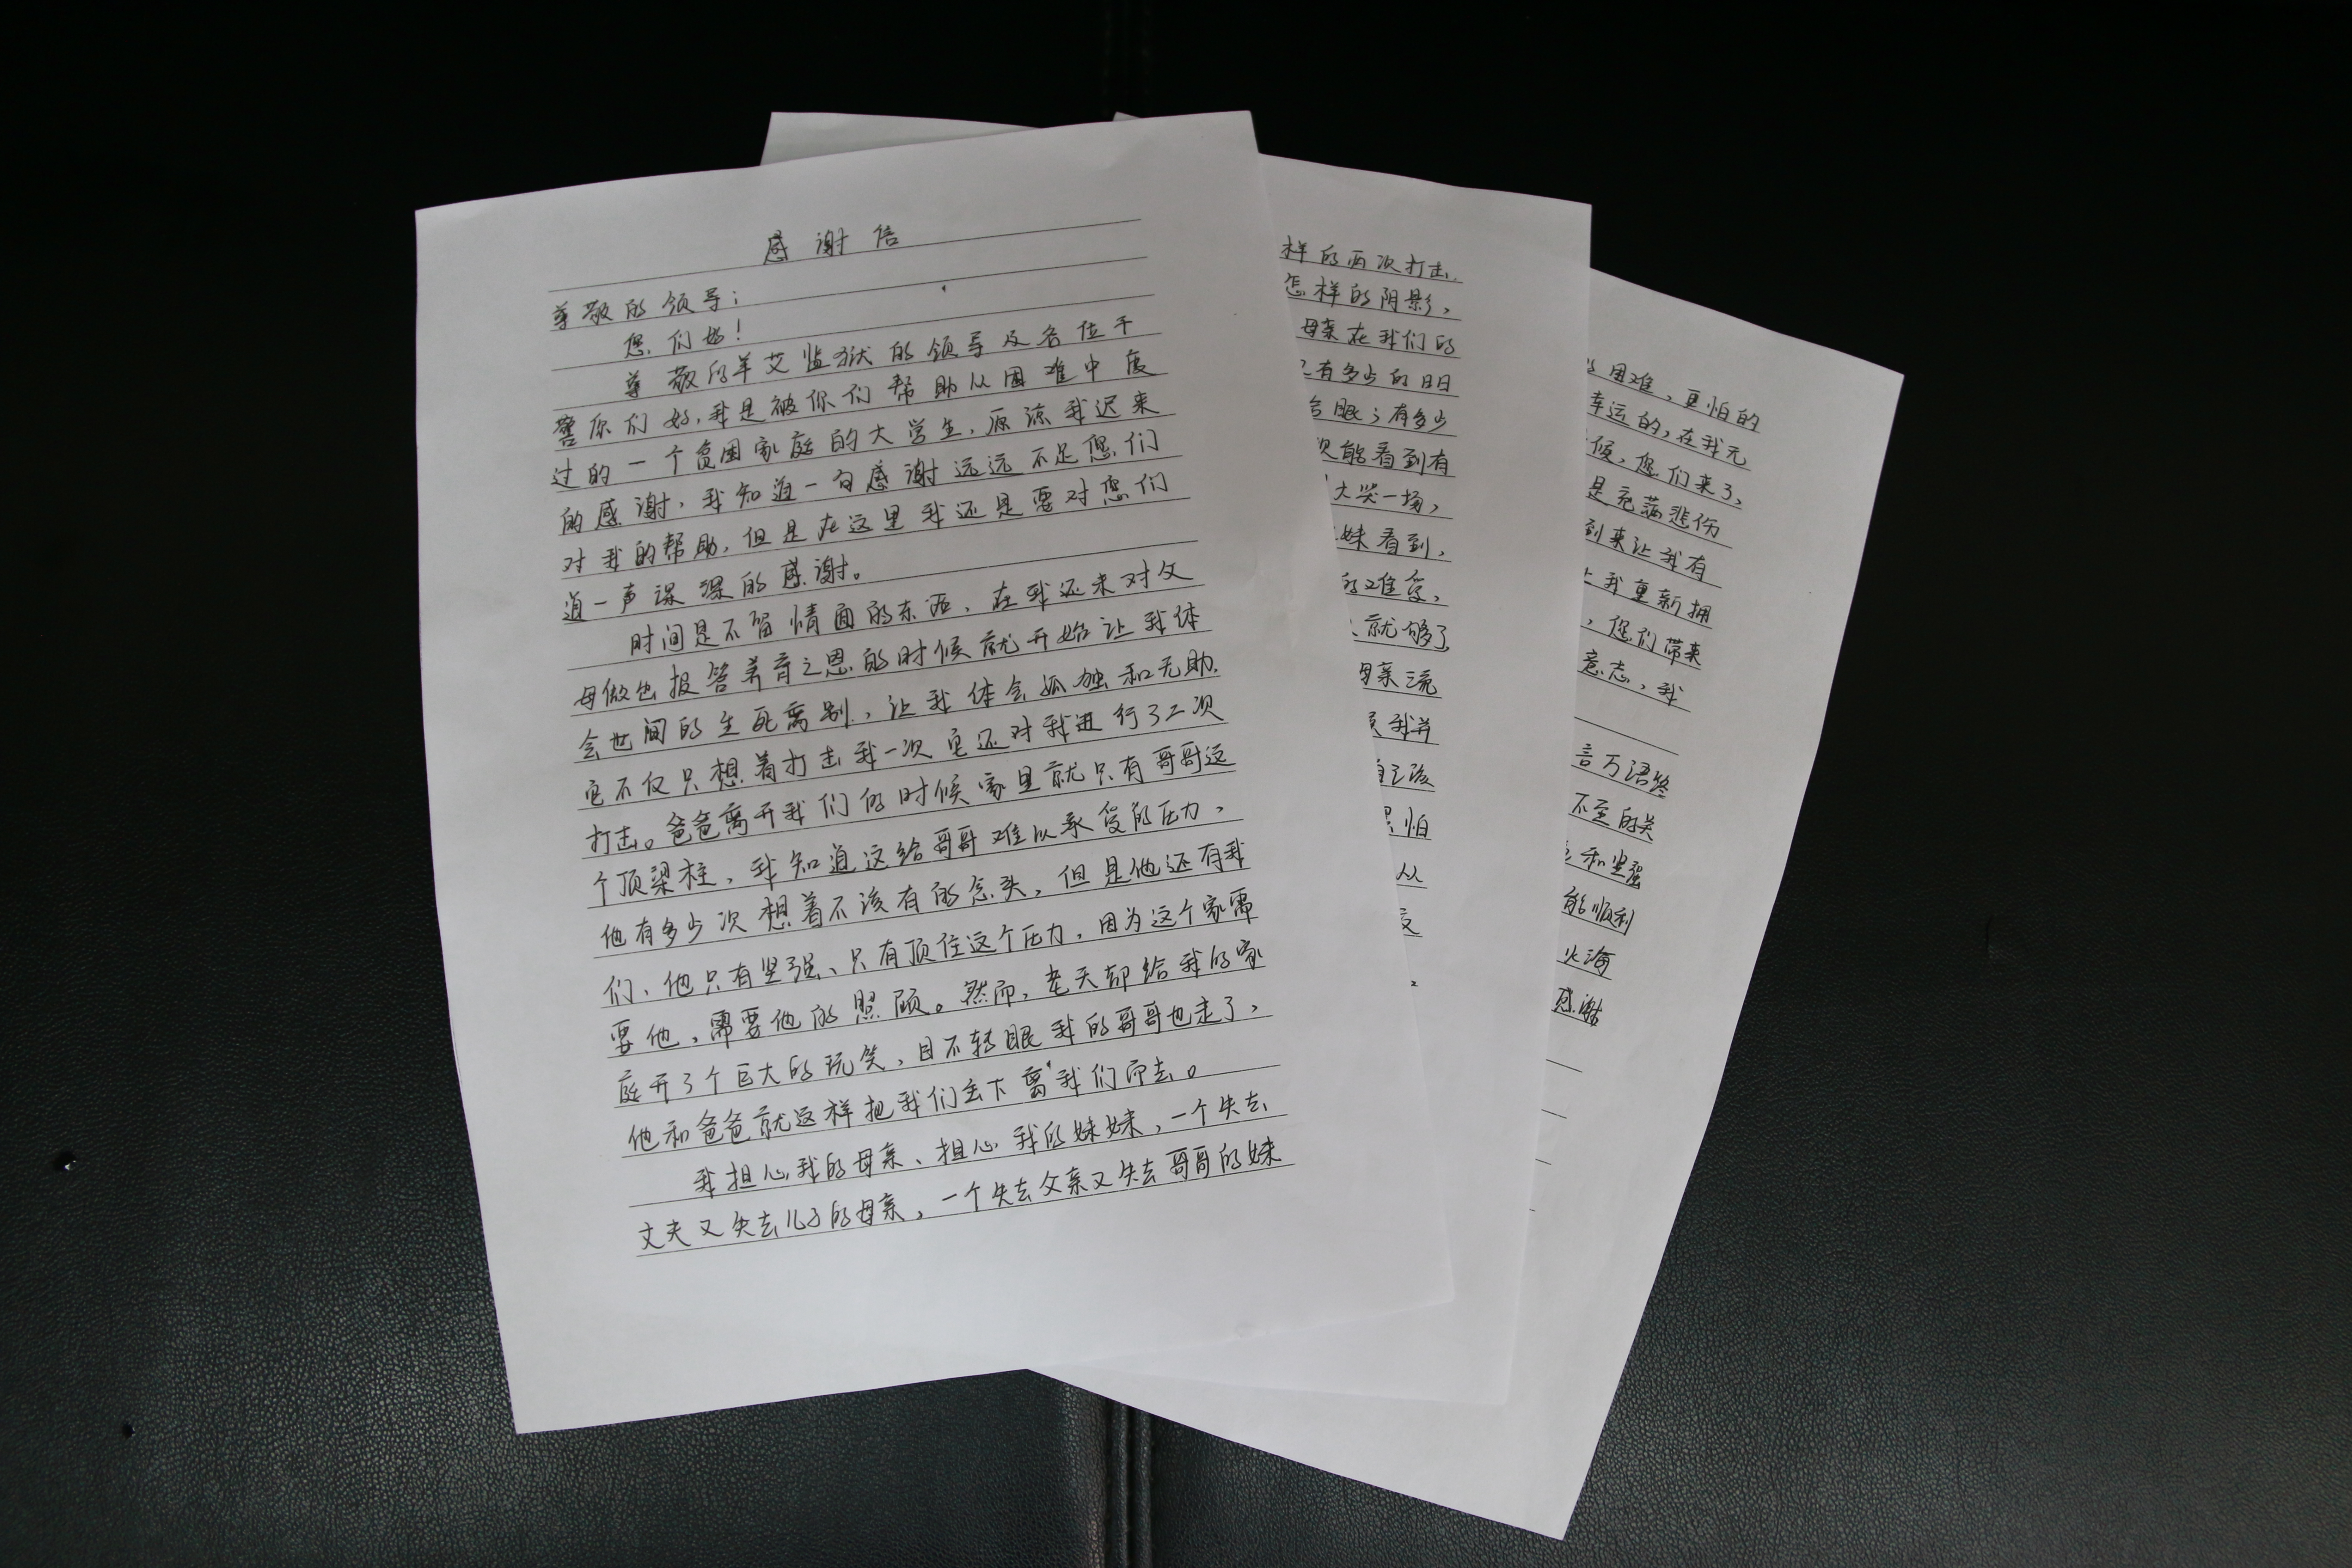 感谢信
尊敬的领导：
您们好！
尊敬的羊艾监狱的领导及各位干
警你们好，我是被你们帮助从困难中度
过的一个贫困家庭的大学生，原谅我迟来
的感谢，我知道一句感谢远远不足您们
对我的帮助，但是在这里我还是要对您们
道一声深深的感谢。
时间是不留情面的东西，在我还未对父
母做出报答养育之恩的时候就开始让我体
会世间的生死离别，让我体会孤独和无助.
它不仅只想着打击我一次它还对我进行了二次
打击。爸爸离开我们的时候家里就只有哥哥这
个顶梁柱，我知道这给哥哥难以承受的压力，
他有多少次想着不该有的念头，但是他还有我
们、他只有坚强、只有顶住这个压力，因为这个家需
要他，需要他的照顾。然而，老天却给我的家
庭开了个巨大的玩笑，目不转眼我的哥哥也走了，
他和爸爸就这样把我们丢下离我们而去。
我担心我的母亲、担心我的妹妹，一个失去
丈夫又失去儿子的母亲，一个失去父亲又失去哥哥的妹
样的两次打击.
怎样的阴影，
母亲在我们的
有多少的日日
眼；有多少
能看到有
大哭一场，
妹看到，
的难受，
就够了
母亲流
我并
怕
从
困难，更怕的
幸运的，在我无
候，您们来了，
是充满悲伤
到来让我有
我重新拥
，您们带来
意志，我
言万语终
不至的关
和坚强
能顺利
火海
感谢